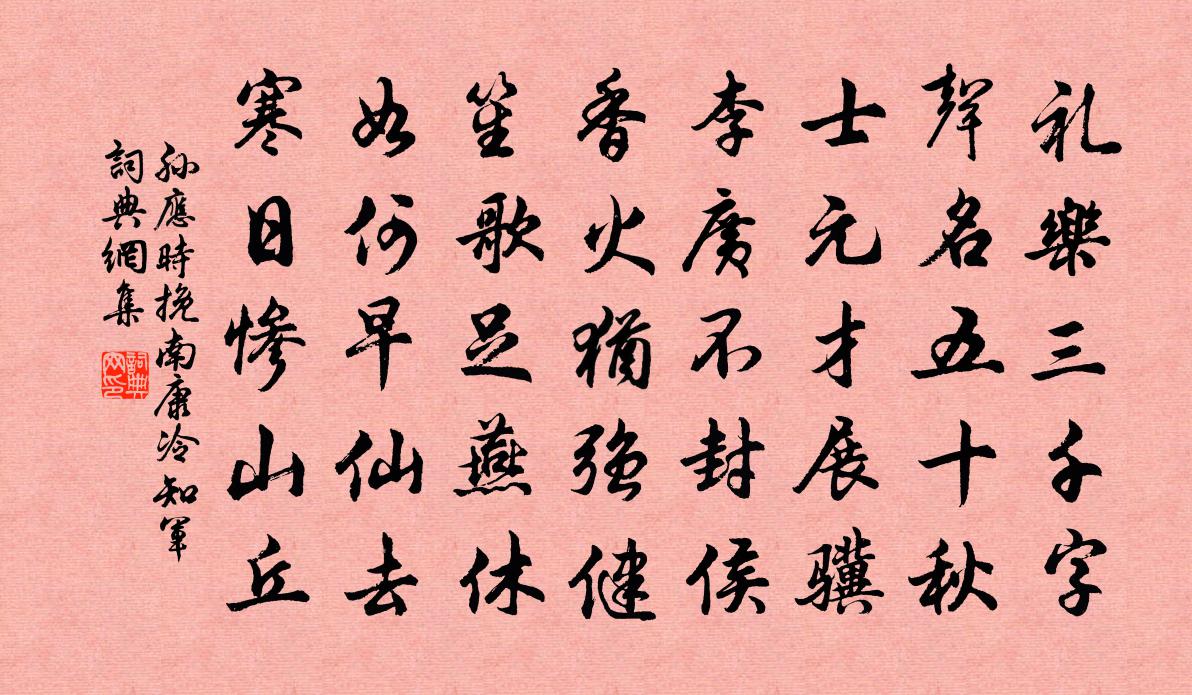 礼樂三千字
聲名五十秋
士元才展驥
李廣不封侯
香火猶強健
笙歌足燕休
如何早仙去
寒日慘山丘
孫應時挽南康冷知軍
詞典網集
詞典網印